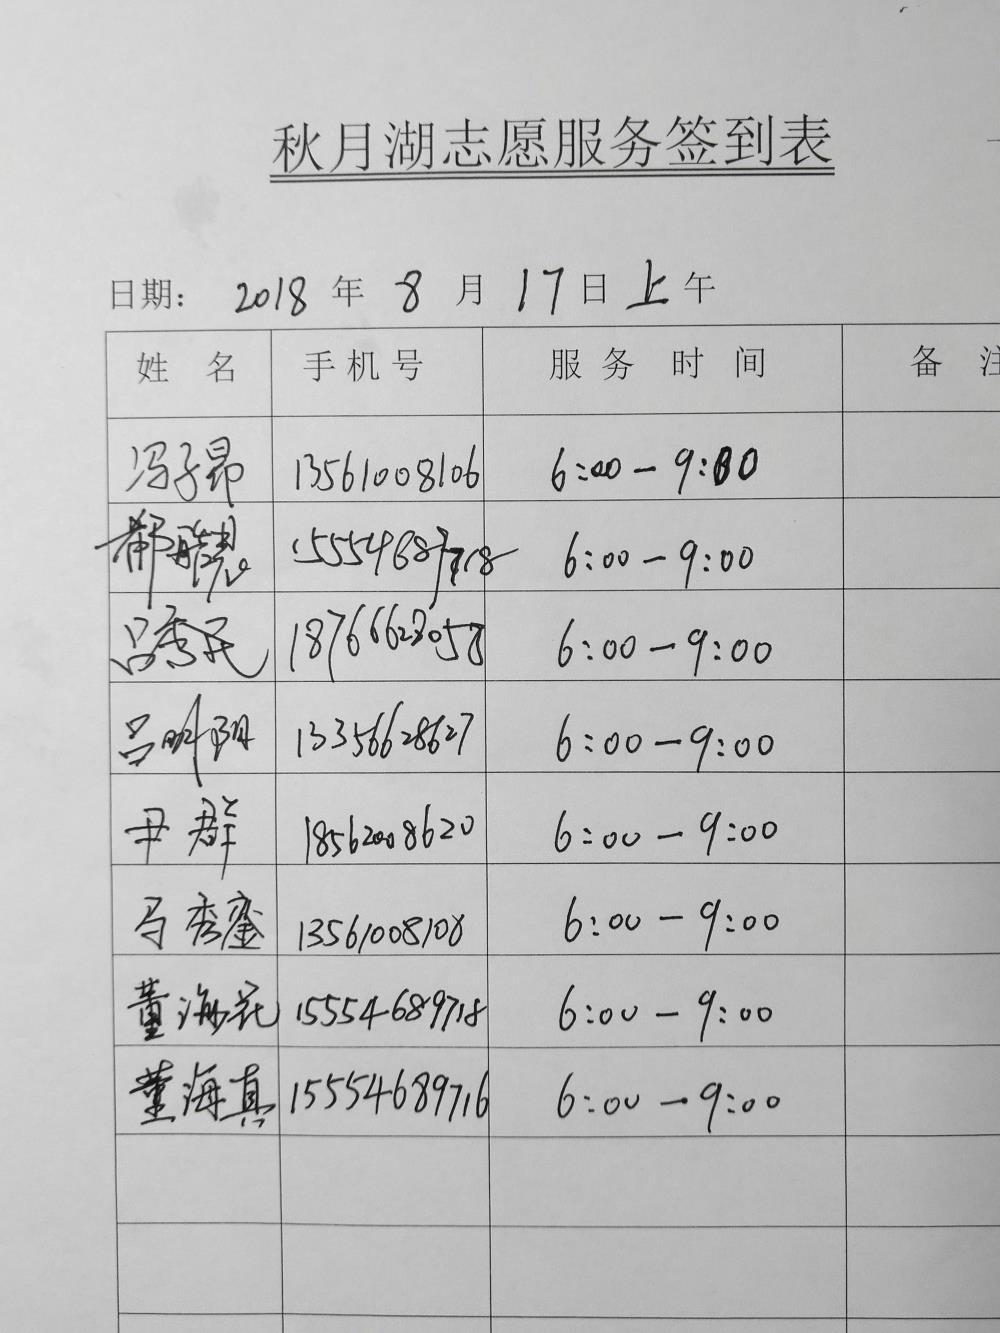 秋月湖志愿服务签到表
日期: 2018 年 8 月 17 日 上 午
姓 名 手机号 服务 时间 备 注
冯子昂 13561008106 6:00-9:00
6:00-9:00
吕秀民 6:00-9:00
吕明阳 13356628627 6:00-9:00
尹群 18562008620 6:00-9:00
马秀銮 13561008108 6:00-9:00
董海花 15554689718 6:00-9:00
董海真 15554689716 6:00-9:00